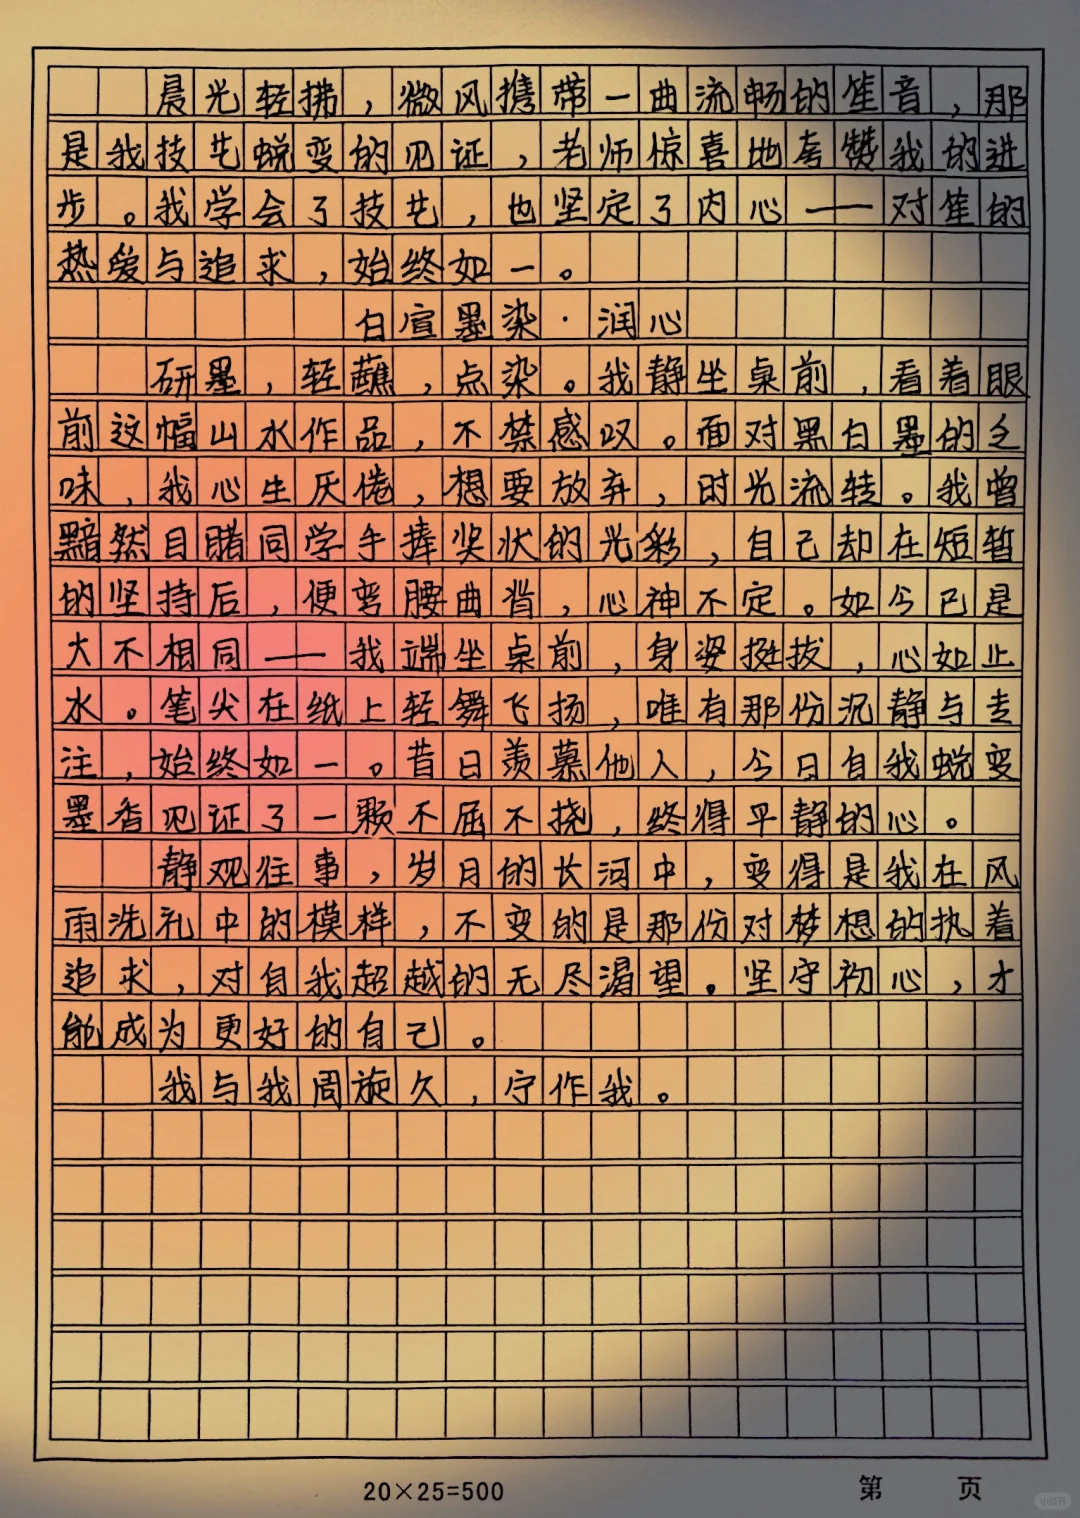 晨光轻拂，微风携带一曲流畅的笙音，那
是我技艺蜕变的见证，老师惊喜地夸赞我的进
步。我学会了技艺，也坚定了内心——对笙的
热爱与追求，始终如一。
白宣墨染·润心
研墨，轻蘸，点染。我静坐桌前，看着眼
前这幅山水作品，不禁感叹。面对黑白墨的乏
味，我心生厌倦，想要放弃，时光流转。我曾
黯然目睹同学手捧奖状的光彩，自己却在短暂
的坚持后，便弯腰曲背，心神不定。如今已是
大不相同——我端坐桌前，身姿挺拔，心如止
水。笔尖在纸上轻舞飞扬，唯有那份沉静与专
注，始终如一。昔日羡慕他人，今日自我蜕变
墨香见证了一颗不屈不挠，终得平静的心。
静观往事，岁月的长河中，变得是我在风
雨洗礼中的模样，不变的是那份对梦想的执着
追求，对自我超越的无尽渴望。坚守初心，才
能成为更好的自己。
我与我周旋久，宁作我。
20×25=500
第 页
小红书